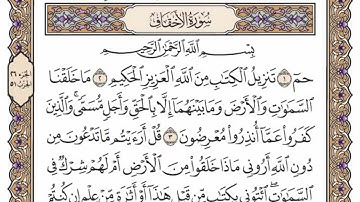 سُورَةُ الأَحْقَافِ
بِسْمِ ٱللَّهِ ٱلرَّحْمَٰنِ ٱلرَّحِيمِ
حمٓ ١ تَنزِيلُ ٱلْكِتَٰبِ مِنَ ٱللَّهِ ٱلْعَزِيزِ ٱلْحَكِيمِ ٢ مَا خَلَقْنَا
ٱلسَّمَٰوَٰتِ وَٱلْأَرْضَ وَمَا بَيْنَهُمَآ إِلَّا بِٱلْحَقِّ وَأَجَلٍ مُّسَمًّى ۚ وَٱلَّذِينَ
كَفَرُوا۟ عَمَّآ أُنذِرُوا۟ مُعْرِضُونَ ٣ قُلْ أَرَءَيْتُم مَّا تَدْعُونَ مِن
دُونِ ٱللَّهِ أَرُونِى مَاذَا خَلَقُوا۟ مِنَ ٱلْأَرْضِ أَمْ لَهُمْ شِرْكٌ فِى
ٱلسَّمَٰوَٰتِ ۖ ٱئْتُونِى بِكِتَٰبٍ مِّن قَبْلِ هَٰذَآ أَوْ أَثَٰرَةٍ مِّنْ عِلْمٍ إِن كُنتُمْ
الجزء ٢٦
الحزب ٥١